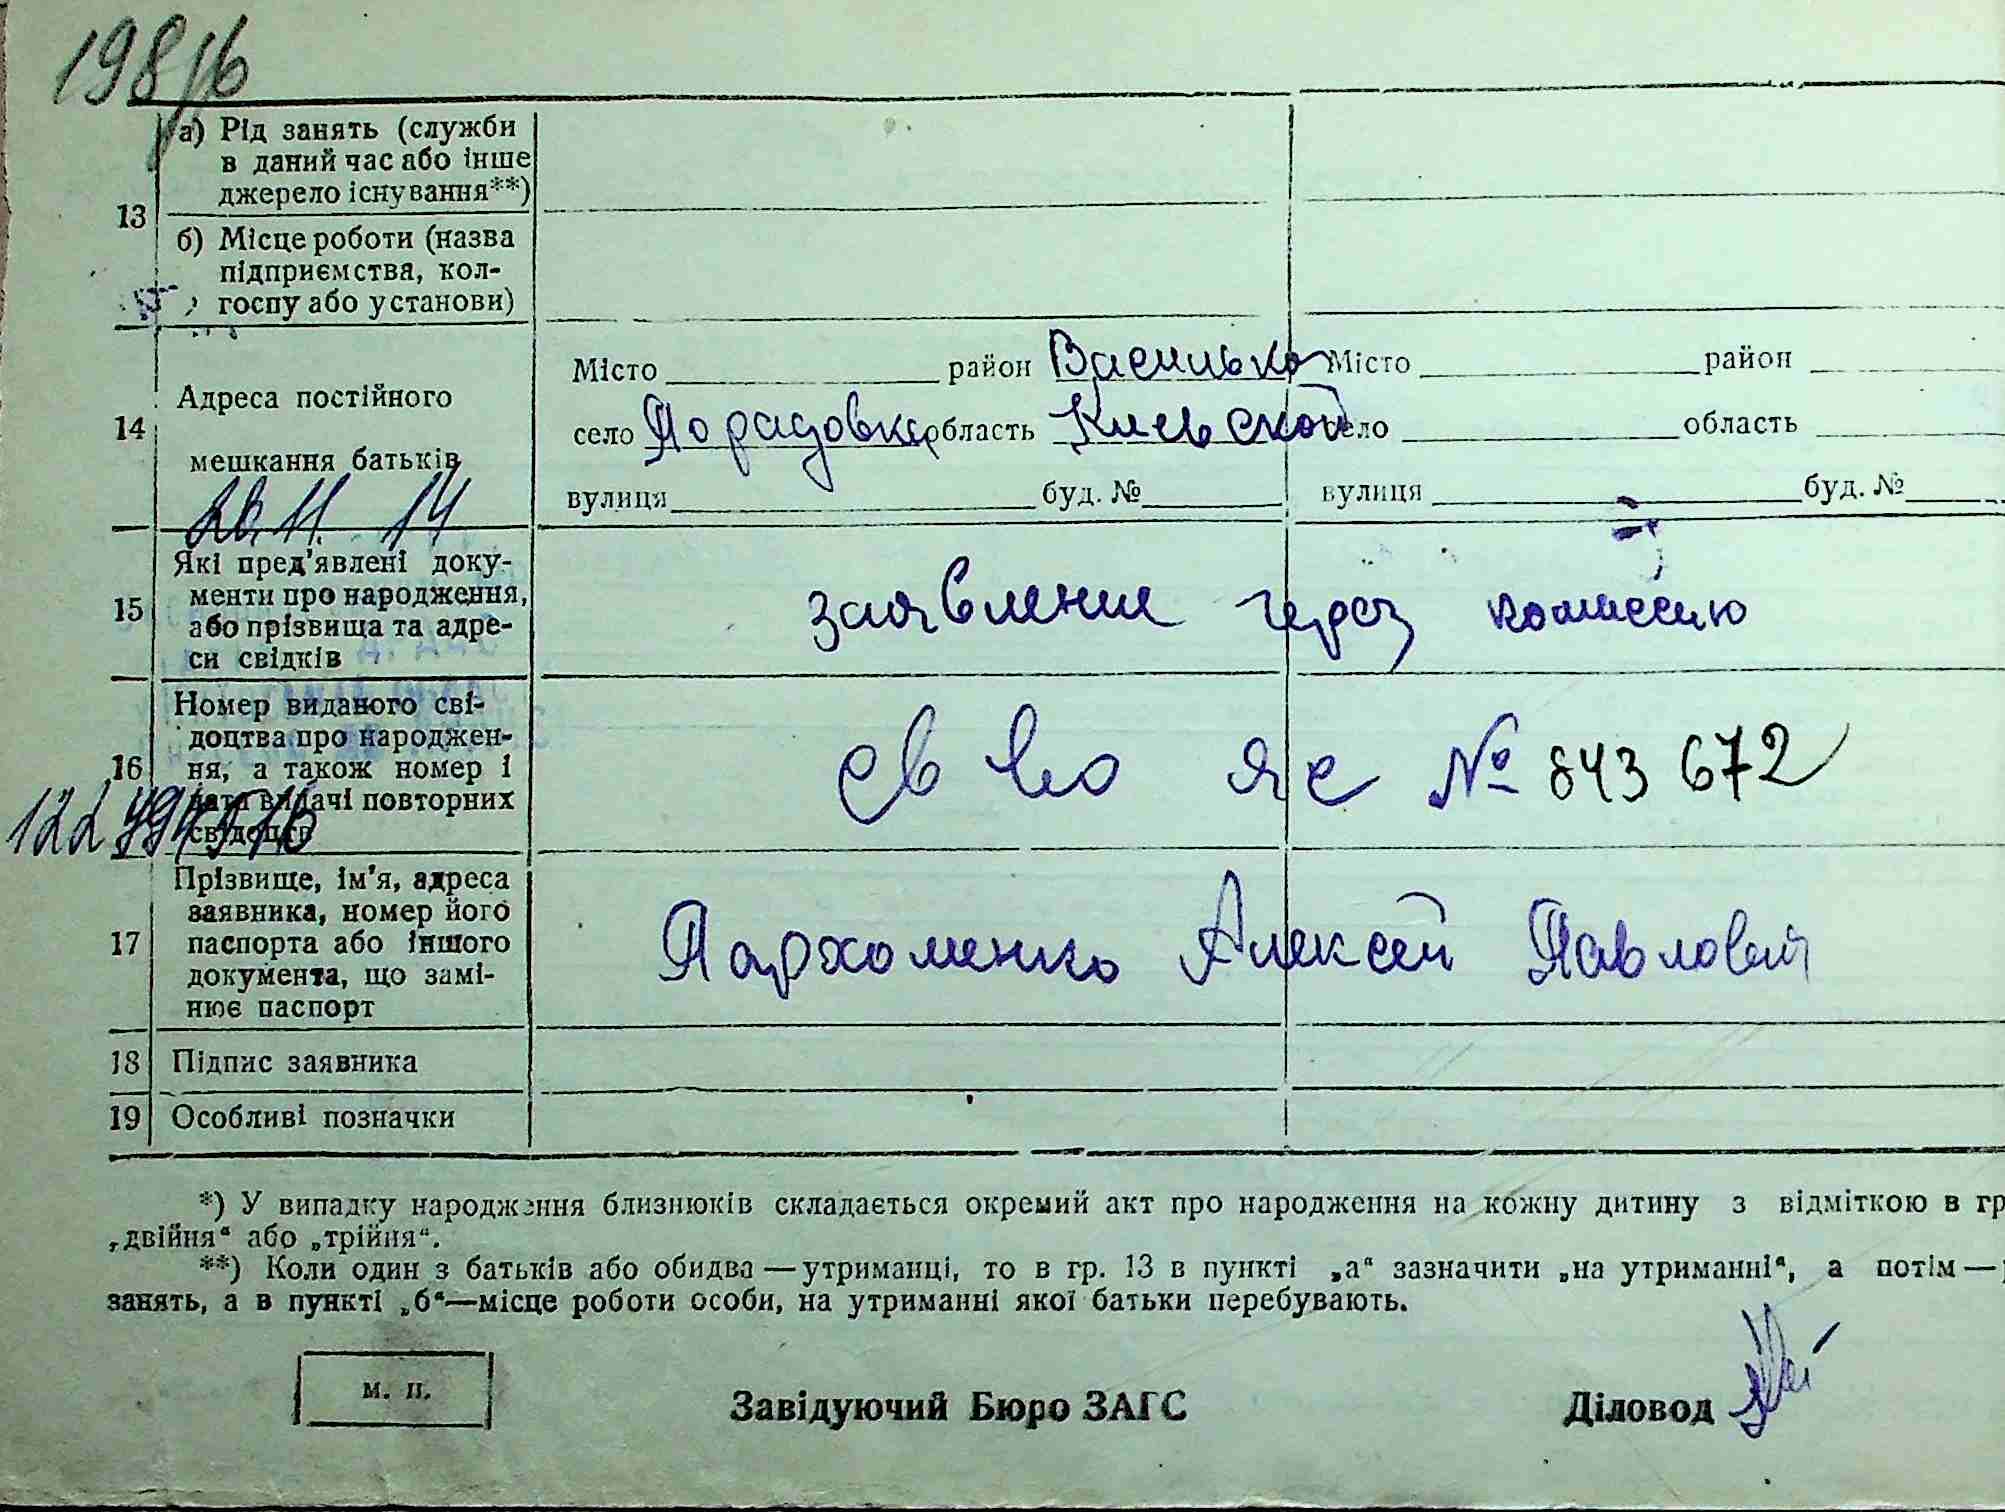 198/6
а) Рід занять (служби
в даний час або інше
джерело існування**)
13
б) Місце роботи (назва
підприємства, кол-
госпу або установи)
Місто район Василько Місто район
14 Адреса постійного
село Порадовка область Киевской село область
мешкання батьків
вулиця буд. № вулиця буд. №
20 11. 14
15 Які пред'явлені доку-
менти про народження,
або прізвища та адре-
си свідків
заявление через комиссию
16 Номер виданого сві-
доцтва про народжен-
ня, а також номер і
дата видачі повторних
свідоцтв
св во яс № 843 672
17 Прізвище, ім'я, адреса
заявника, номер його
паспорта або іншого
документа, що замі-
нює паспорт
Пархоменко Алексей Павлович
18 Підпис заявника
19 Особливі позначки
*) У випадку народження близнюків складається окремий акт про народження на кожну дитину з відміткою в гр
„двійня“ або „трійня“.
**) Коли один з батьків або обидва — утриманці, то в гр. 13 в пункті „а“ зазначити „на утриманні“, а потім —
занять, а в пункті „б“—місце роботи особи, на утриманні якої батьки перебувають.
м. п.
Завідуючий Бюро ЗАГС Діловод